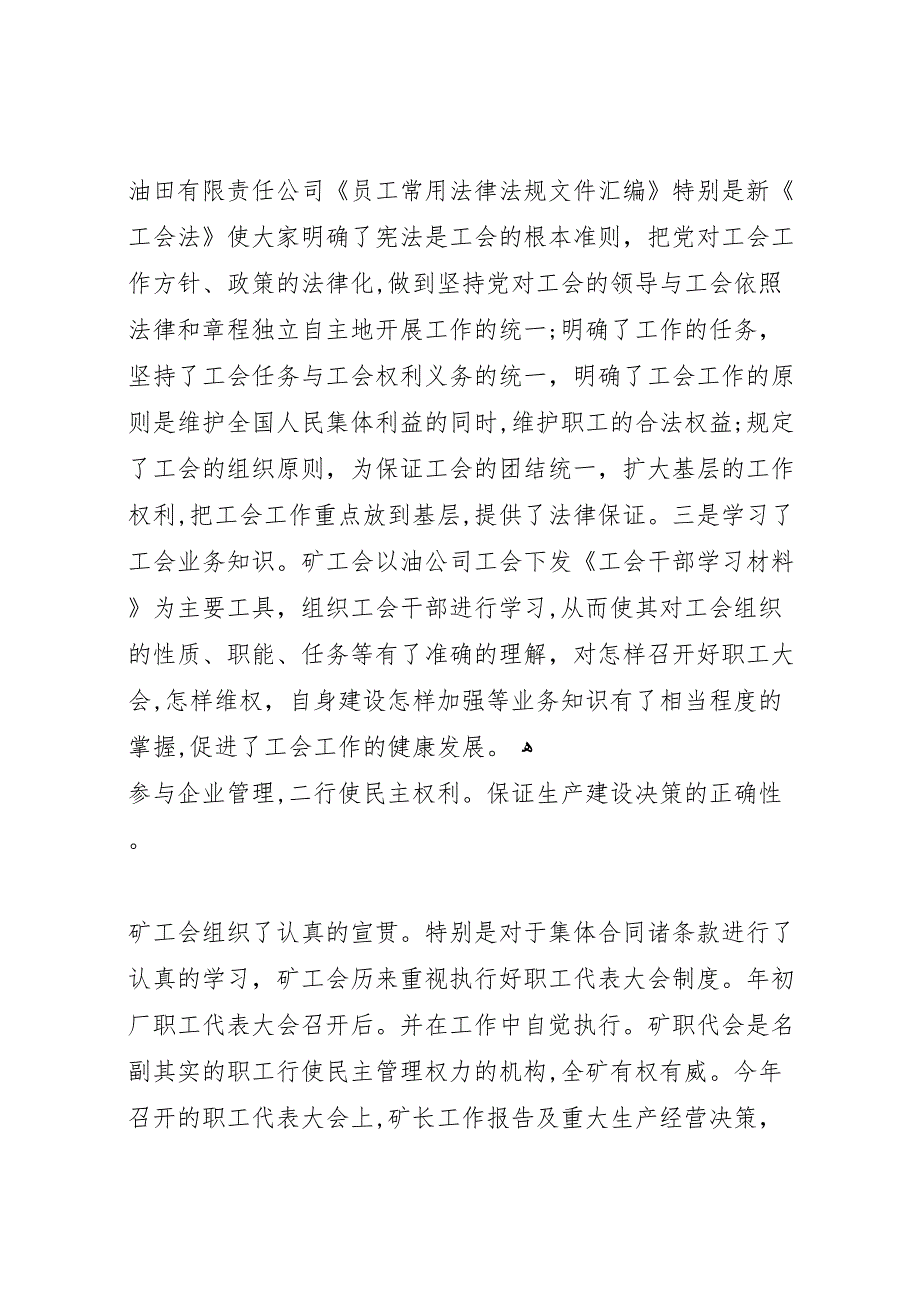 油田有限责任公司《员工常用法律法规文件汇编》特别是新《
工会法》使大家明确了宪法是工会的根本准则，把党对工会工
作方针、政策的法律化,做到坚持党对工会的领导与工会依照
法律和章程独立自主地开展工作的统一;明确了工作的任务，
坚持了工会任务与工会权利义务的统一，明确了工会工作的原
则是维护全国人民集体利益的同时,维护职工的合法权益;规定
了工会的组织原则，为保证工会的团结统一，扩大基层的工作
权利,把工会工作重点放到基层,提供了法律保证。三是学习了
工会业务知识。矿工会以油公司工会下发《工会干部学习材料
》为主要工具，组织工会干部进行学习,从而使其对工会组织
的性质、职能、任务等有了准确的理解，对怎样召开好职工大
会,怎样维权，自身建设怎样加强等业务知识有了相当程度的
掌握,促进了工会工作的健康发展。 ﻫ
参与企业管理,二行使民主权利。保证生产建设决策的正确性
。
矿工会组织了认真的宣贯。特别是对于集体合同诸条款进行了
认真的学习，矿工会历来重视执行好职工代表大会制度。年初
厂职工代表大会召开后。并在工作中自觉执行。矿职代会是名
副其实的职工行使民主管理权力的机构,全矿有权有威。今年
召开的职工代表大会上,矿长工作报告及重大生产经营决策，